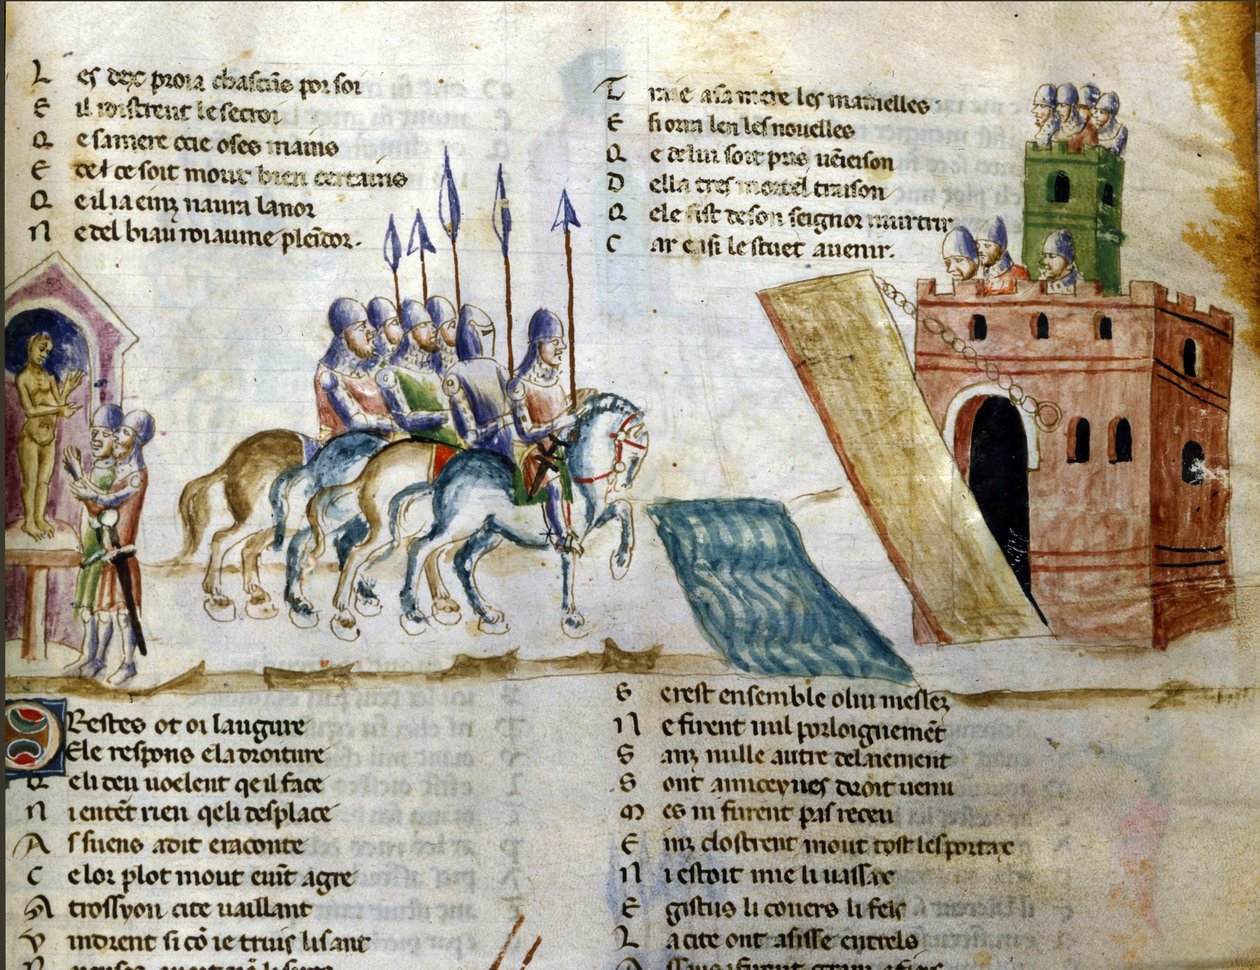 Les dex proia chascuns por soi
E il mostrent le secroi
Q e samere ocie o ses mains
E ce soit mout bien certains
Q e il ia einz naura lanor
N e del biau roiaume plendor.
T raie a sa mere les mamelles
E si orra len les nouelles
Q e de lui soit pris uenieison
D el la tres mortel traison
Q ele fist de son seignor murtrir
C ar ensi lestuet auenir.
O Restes ot oi laugure
Ele respons e la droiture
Q e li deu uoelent qe il face
N i entēt rien qe li desplace
A s suens a dit e raconte
C e lor plot mout eunt agre
A trossyon cite uaillant
V indrent si cō ie truis lisant
G erest ensemble o lui meslez
N e firent nul porloignemēt
S anz nulle autre delaiement
S ont a miceynes droit uenu
M es ni furent pas receu
E inz clostrent mout tost les portaxe
N i estoit mie li uassaxe
E gistus li couers li fels
L a cite ont asisse entrels